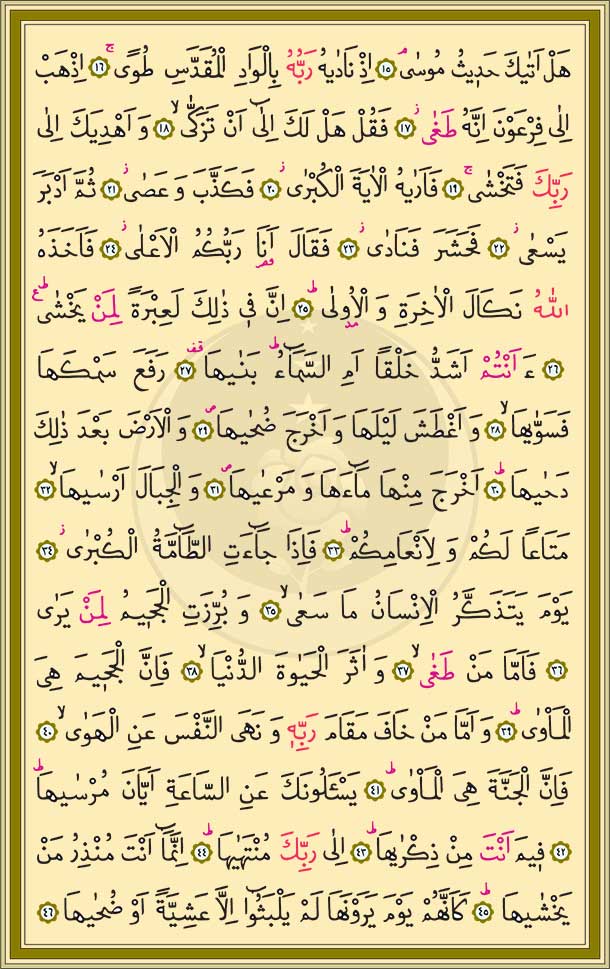 هَلْ اَتٰيكَ حَد۪يثُ مُوسٰىۢ ﴿١٥﴾ اِذْ نَادٰيهُ رَبُّهُ بِالْوَادِ الْمُقَدَّسِ طُوًىۚ ﴿١٦﴾ اِذْهَبْ
اِلٰى فِرْعَوْنَ اِنَّهُ طَغٰىۘ ﴿١٧﴾ فَقُلْ هَلْ لَكَ اِلٰٓى اَنْ تَزَكّٰىۙ ﴿١٨﴾ وَ اَهْدِيَكَ اِلٰى
رَبِّكَ فَتَخْشٰىۚ ﴿١٩﴾ فَاَرٰيهُ الْاٰيَةَ الْكُبْرٰىۘ ﴿٢٠﴾ فَكَذَّبَ وَ عَصٰىۘ ﴿٢١﴾ ثُمَّ اَدْبَرَ
يَسْعٰىۘ ﴿٢٢﴾ فَحَشَرَ فَنَادٰىۘ ﴿٢٣﴾ فَقَالَ اَنَا۬ رَبُّكُمُ الْاَعْلٰىۘ ﴿٢٤﴾ فَاَخَذَهُ
اللّٰهُ نَكَالَ الْاٰخِرَةِ وَ الْاُو۫لٰىۜ ﴿٢٥﴾ اِنَّ ف۪ى ذٰلِكَ لَعِبْرَةً لِمَنْ يَخْشٰىۜ
﴿٢٦﴾ ءَ اَنْتُمْ اَشَدُّ خَلْقًا اَمِ السَّمَٓاءُۜ بَنٰيهَا ﴿٢٧﴾ رَفَعَ سَمْكَهَا
فَسَوّٰيهَاۙ ﴿٢٨﴾ وَ اَغْطَشَ لَيْلَهَا وَ اَخْرَجَ ضُحٰيهَاۖ ﴿٢٩﴾ وَ الْاَرْضَ بَعْدَ ذٰلِكَ
دَحٰيهَاۜ ﴿٣٠﴾ اَخْرَجَ مِنْهَا مَٓاءَهَا وَ مَرْعٰيهَاۖ ﴿٣١﴾ وَ الْجِبَالَ اَرْسٰيهَاۙ ﴿٣٢﴾
مَتَاعًا لَكُمْ وَ لِاَنْعَامِكُمْۜ ﴿٣٣﴾ فَاِذَا جَٓاءَتِ الطَّٓامَّةُ الْكُبْرٰىۘ ﴿٣٤﴾
يَوْمَ يَتَذَكَّرُ الْاِنْسَانُ مَا سَعٰىۙ ﴿٣٥﴾ وَ بُرِّزَتِ الْجَح۪يمُ لِمَنْ يَرٰى
﴿٣٦﴾ فَاَمَّا مَنْ طَغٰىۙ ﴿٣٧﴾ وَ اٰثَرَ الْحَيٰوةَ الدُّنْيَاۙ ﴿٣٨﴾ فَاِنَّ الْجَح۪يمَ هِىَ
الْمَاْوٰىۜ ﴿٣٩﴾ وَ اَمَّا مَنْ خَافَ مَقَامَ رَبِّه۪ وَ نَهَى النَّفْسَ عَنِ الْهَوٰىۙ ﴿٤٠﴾
فَاِنَّ الْجَنَّةَ هِىَ الْمَاْوٰىۜ ﴿٤١﴾ يَسْـَٔلُونَكَ عَنِ السَّاعَةِ اَيَّانَ مُرْسٰيهَاۜ
﴿٤٢﴾ ف۪يمَ اَنْتَ مِنْ ذِكْرٰيهَاۜ ﴿٤٣﴾ اِلٰى رَبِّكَ مُنْتَهٰيهَاۜ ﴿٤٤﴾ اِنَّمَٓا اَنْتَ مُنْذِرُ مَنْ
يَخْشٰيهَاۜ ﴿٤٥﴾ كَاَنَّهُمْ يَوْمَ يَرَوْنَهَا لَمْ يَلْبَثُٓوا اِلَّا عَشِيَّةً اَوْ ضُحٰيهَا ﴿٤٦﴾